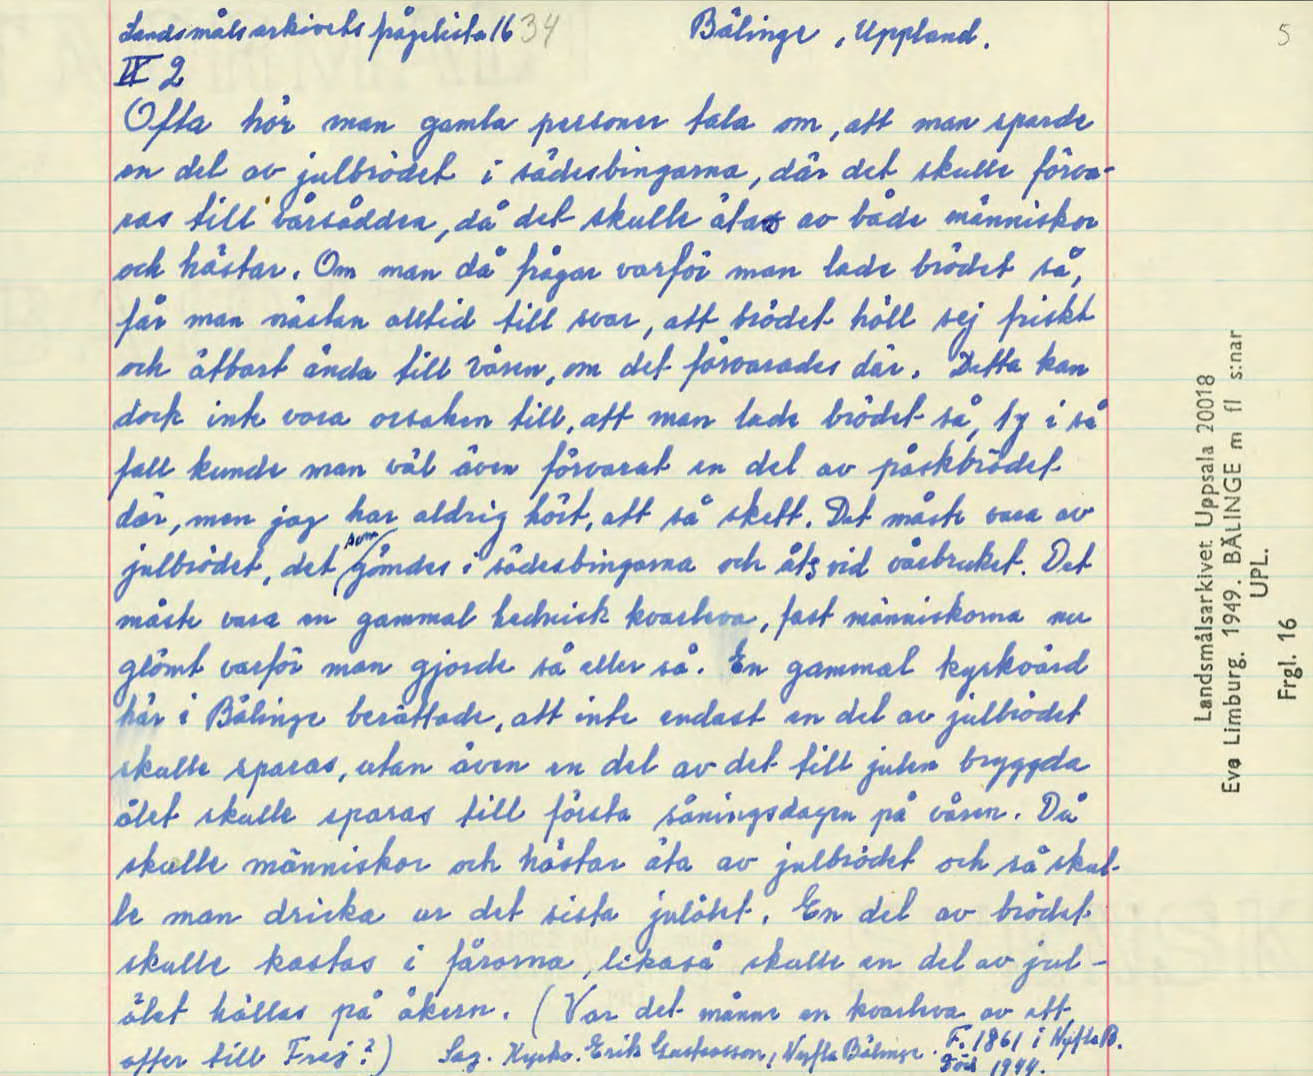 Landsmålsarkivets frågelista 16 34 Bälinge, Uppland. 5
II 2
Ofta hör man gamla personer tala om, att man sparde
en del av julbrödet i sädesbingarna, där det skulle förva-
ras till vårsådden, då det skulle ätas av både människor
och hästar. Om man då frågar varför man lade brödet så,
får man nästan alltid till svar, att brödet höll sej friskt
och ätbart ända till våren, om det förvarades där. Detta kan
dock inte vara orsaken till, att man lade brödet så, ty i så
fall kunde man väl även förvarat en del av påskbrödet
där, men jag har aldrig hört, att så skett. Det måste vara av
julbrödet, det som gömdes i sädesbingarna och åts vid vårbruket. Det
måste vara en gammal hednisk kvarleva, fast människorna nu
glömt varför man gjorde så eller så. En gammal kyrkvärd
här i Bälinge berättade, att inte endast en del av julbrödet
skulle sparas, utan även en del av det till julen bryggda
ölet skulle sparas till första såningsdagen på våren. Då
skulle människor och hästar äta av julbrödet och så skul-
le man dricka ur det sista julölet. En del av brödet
skulle kastas i fårorna, likaså skulle en del av jul-
ölet hällas på åkern. (Var det månne en kvarleva av ett
offer till Frej?) Sag. Kyrkv. Erik Gustavsson, Nyfla Bälinge. F. 1861 i Nyfla B.
Död 1944.
Landsmålsarkivet Uppsala 20018
Eva Limburg. 1949. BÄLINGE m fl s:nar
UPL.
Frgl. 16